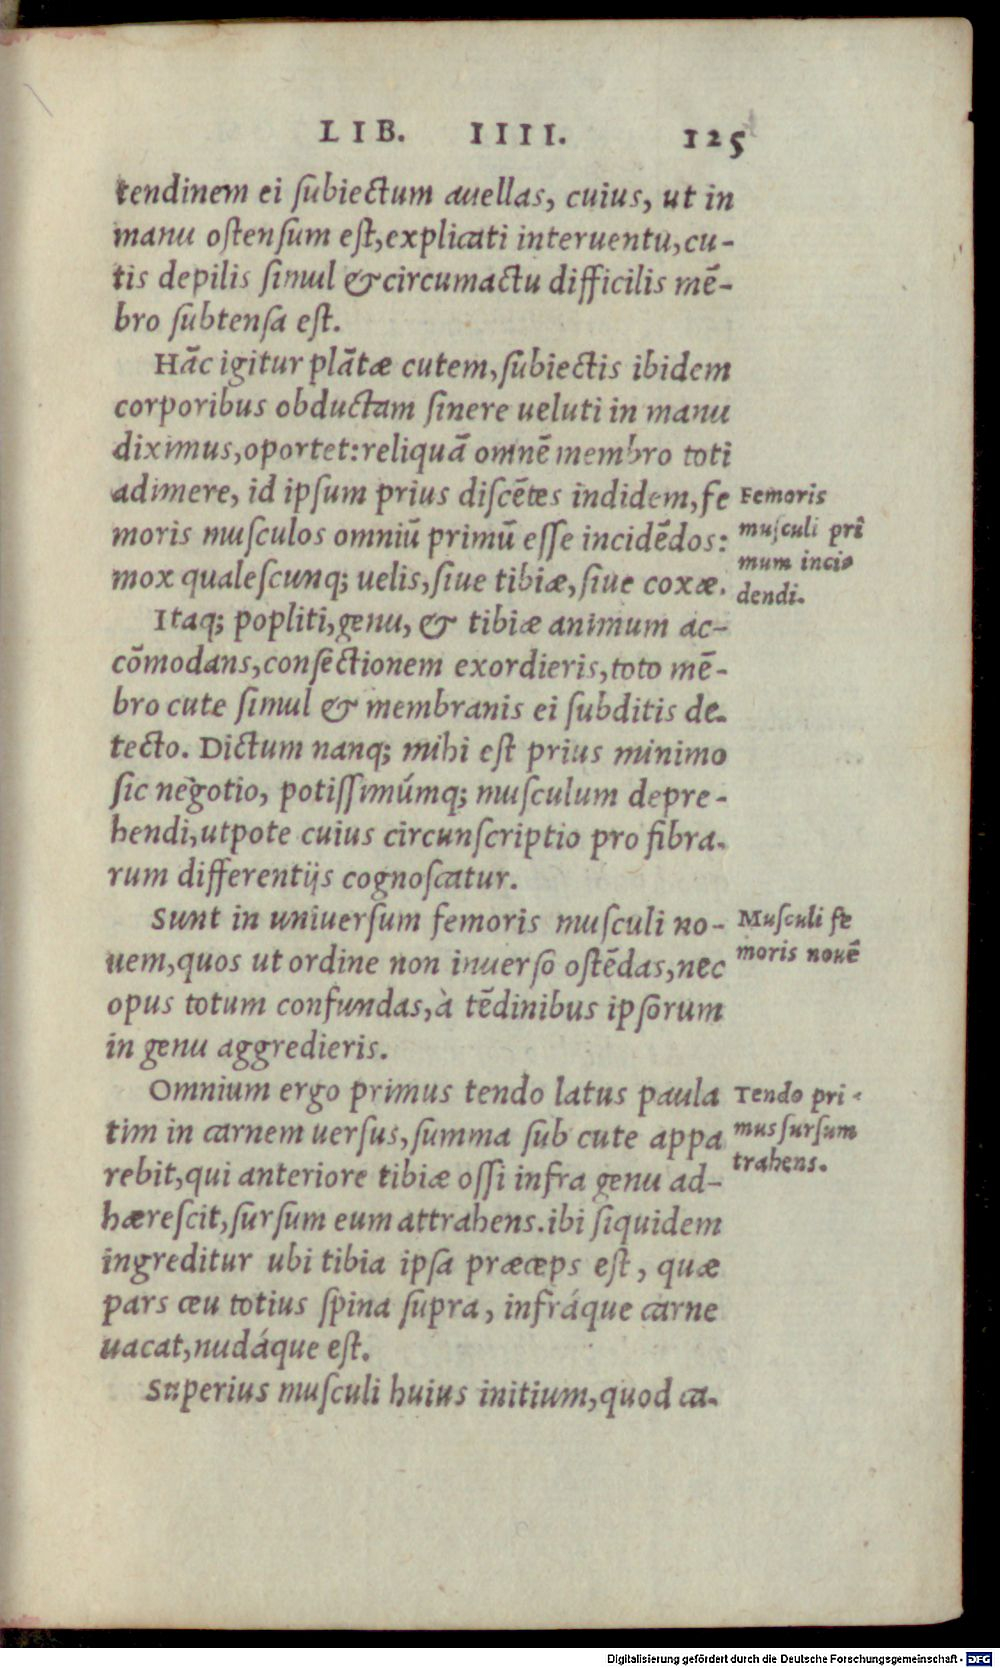 LIB. IIII. 125
tendinem ei ſubiectum auellas, cuius, ut in
manu oſtenſum eſt, explicati interuentu, cu-
tis depilis ſimul & circumactu difficilis mē-
bro ſubtenſa eſt.
Hāc igitur plātæ cutem, ſubiectis ibidem
corporibus obductam ſinere ueluti in manu
diximus, oportet: reliquā omnē membro toti
adimere, id ipſum prius diſcētes indidem, fe
moris muſculos omniū primū eſſe incidēdos:
mox qualeſcunq; uelis, ſiue tibiæ, ſiue coxæ.
Femoris
muſculi prī
mum incio
dendi.
Itaq; popliti, genu, & tibiæ animum ac-
cōmodans, conſectionem exordieris, toto mē-
bro cute ſimul & membranis ei ſubditis de-
tecto. Dictum nanq; mihi eſt prius minimo
ſic negotio, potiſſimúmq; muſculum depre-
hendi, utpote cuius circunſcriptio pro fibra-
rum differentijs cognoſcatur.
Sunt in uniuerſum femoris muſculi no-
uem, quos ut ordine non inuerſo oſtēdas, nec
opus totum confundas, à tēdinibus ipſorum
in genu aggredieris.
Muſculi fe
moris nouē
Omnium ergo primus tendo latus paula
tim in carnem uerſus, ſumma ſub cute appa
rebit, qui anteriore tibiæ oſſi infra genu ad-
hæreſcit, ſurſum eum attrahens. ibi ſiquidem
ingreditur ubi tibia ipſa præceps eſt, quæ
pars ceu totius ſpina ſupra, infráque carne
uacat, nudáque eſt.
Tendo pri-
mus ſurſum
trahens.
Superius muſculi huius initium, quod ca-
Digitalisierung gefördert durch die Deutsche Forschungsgemeinschaft - DFG